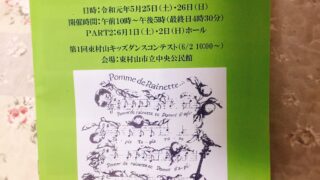 日時:令和元年5月25日(土)・26日(日)
開催時間:午前10時〜午後5時(最終日4時30分)
PART2:6月1日(土)・2日(日)ホール
第1回東村山キッズダンスコンテスト(6/2 10:00〜)
会場:東村山市立中央公民館
Pomme de Rainette